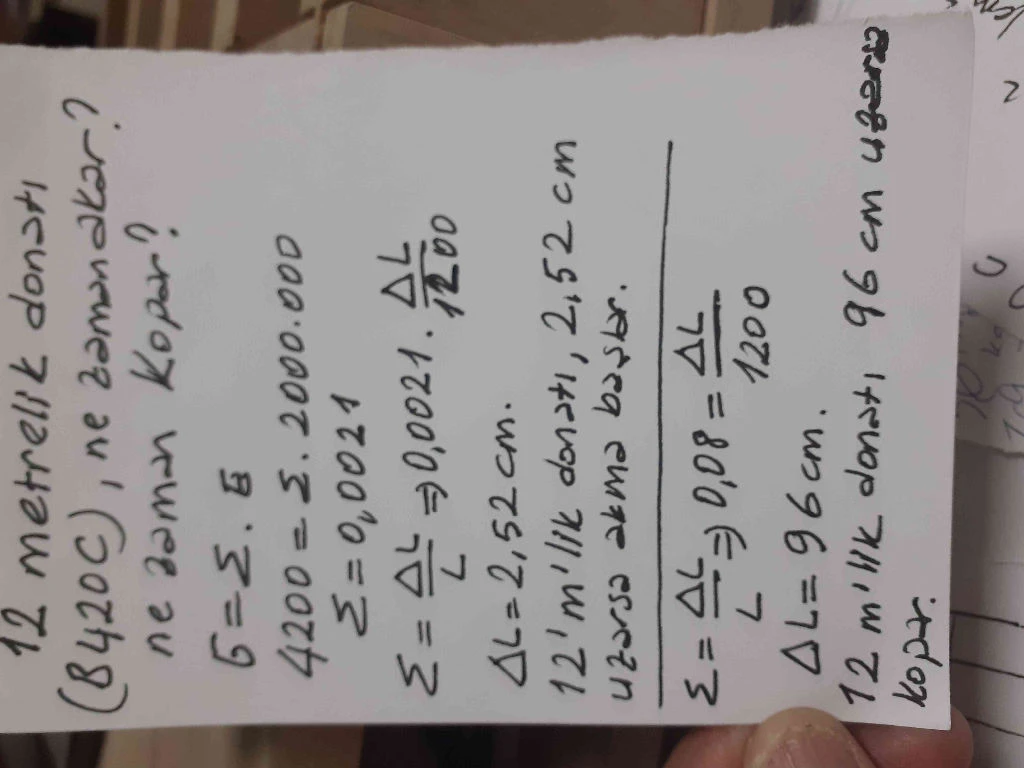 12 metrelik donatı
(B420C), ne zaman akar?
ne zaman kopar?
σ = Σ . E
4200 = Σ . 2000.000
Σ = 0,0021
Σ = ΔL/L ⇒ 0,0021 . ΔL/1200
ΔL = 2,52 cm.
12'm'lik donatı, 2,52 cm
uzarsa akma başlar.
Σ = ΔL/L ⇒ 0,08 = ΔL/1200
ΔL = 96 cm.
12 m'lik donatı 96 cm uzarsa
kopar.